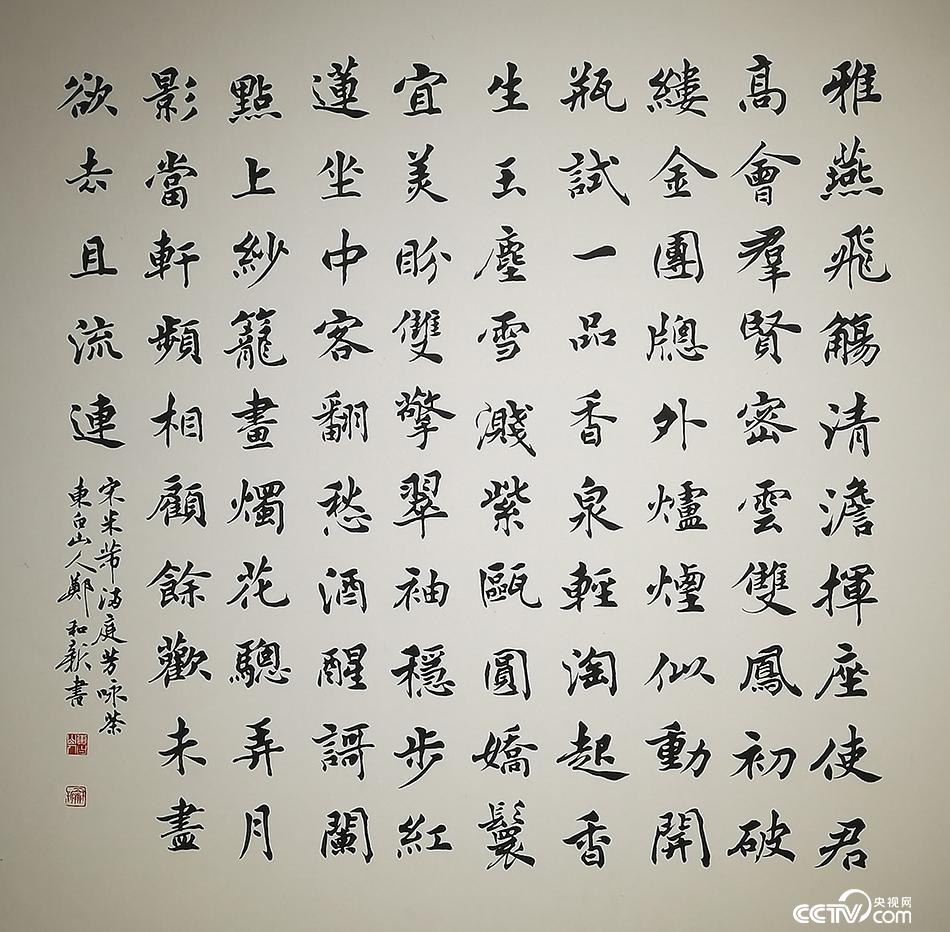 雅燕飛觴清澹揮座使君
高會羣賢密雲雙鳳初破
縷金團牕外爐煙似動開
瓶試一品香泉輕淘起香
生玉塵雪濺紫甌圓嬌鬟
宜美盼雙擎翠袖穩步紅
蓮坐中客翻愁酒醒謌闌
點上紗籠畫燭花驄弄月
影當軒頻相顧餘歡未盡
欲去且流連
宋米芾滿庭芳咏茶
東白山人鄭和新書
CCTV 央视网
com